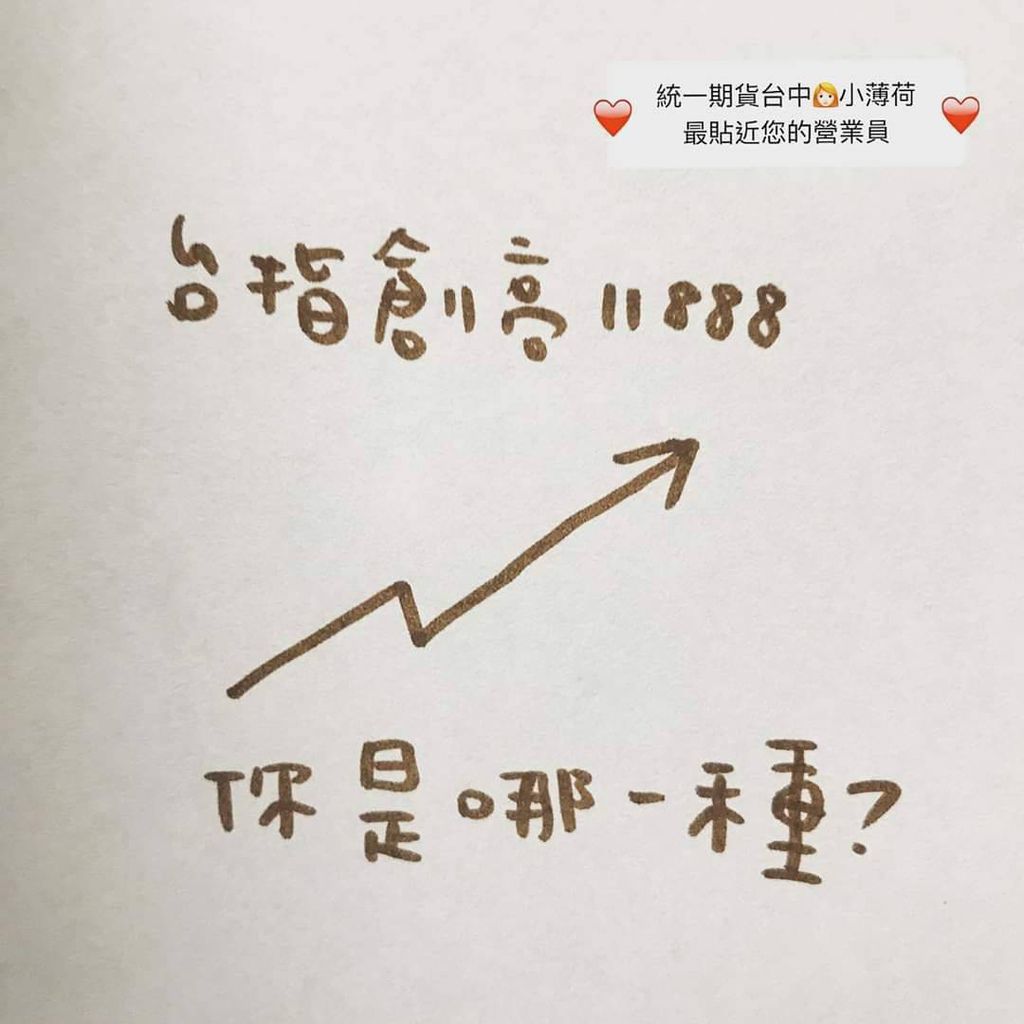 統一期貨台中👩小薄荷
最貼近您的營業員
台指創高11888
你是哪一種?